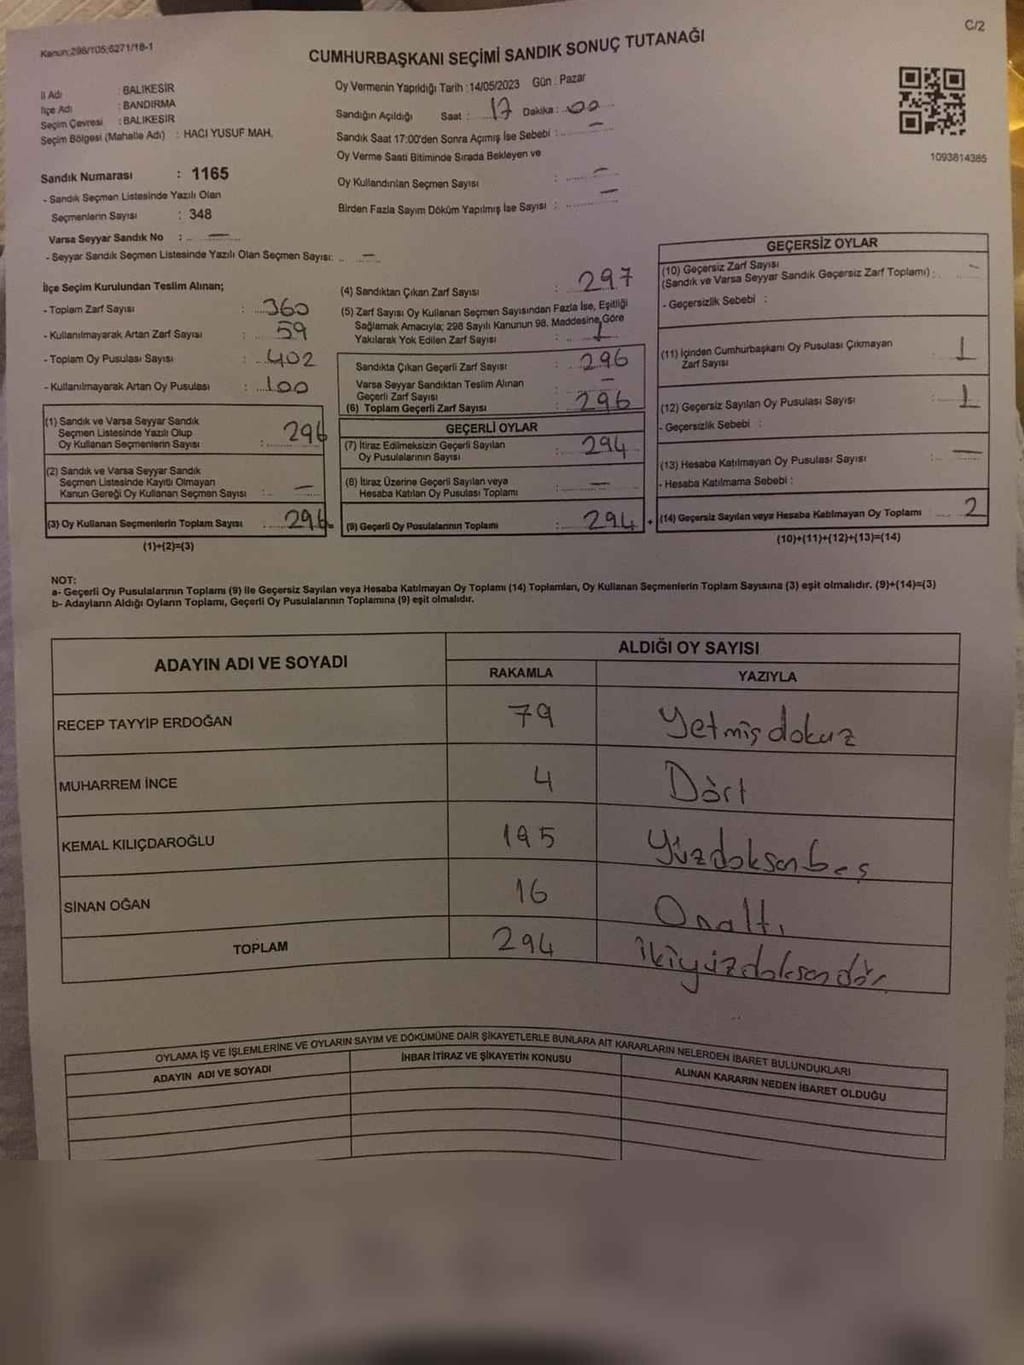 Kanun:298/105;6271/18-1
C/2
CUMHURBAŞKANI SEÇİMİ SANDIK SONUÇ TUTANAĞI
İl Adı : BALIKESİR
İlçe Adı : BANDIRMA
Seçim Çevresi : BALIKESİR
Seçim Bölgesi (Mahalle Adı) : HACI YUSUF MAH.
Oy Vermenin Yapıldığı Tarih :14/05/2023 Gün : Pazar
Sandığın Açıldığı Saat : 17 Dakika : 00
Sandık Saat 17:00'den Sonra Açımış İse Sebebi : –
Oy Verme Saati Bitiminde Sırada Bekleyen ve
Oy Kullandırılan Seçmen Sayısı : –
Birden Fazla Sayım Döküm Yapılmış İse Sayısı : –
1093814385
Sandık Numarası : 1165
- Sandık Seçmen Listesinde Yazılı Olan
Seçmenlerin Sayısı : 348
Varsa Seyyar Sandık No : –
- Seyyar Sandık Seçmen Listesinde Yazılı Olan Seçmen Sayısı: –
İlçe Seçim Kurulundan Teslim Alınan;
- Toplam Zarf Sayısı : 360
- Kullanılmayarak Artan Zarf Sayısı : 59
- Toplam Oy Pusulası Sayısı : 402
- Kullanılmayarak Artan Oy Pusulası : 100
(1) Sandık ve Varsa Seyyar Sandık
Seçmen Listesinde Yazılı Olup
Oy Kullanan Seçmenlerin Sayısı : 296
(2) Sandık ve Varsa Seyyar Sandık
Seçmen Listesinde Kayıtlı Olmayan
Kanun Gereği Oy Kullanan Seçmen Sayısı : –
(3) Oy Kullanan Seçmenlerin Toplam Sayısı : 296
(1)+(2)=(3)
(4) Sandıktan Çıkan Zarf Sayısı : 297
(5) Zarf Sayısı Oy Kullanan Seçmen Sayısından Fazla İse, Eşitliği
Sağlamak Amacıyla; 298 Sayılı Kanunun 98. Maddesine Göre
Yakılarak Yok Edilen Zarf Sayısı : 1
Sandıkta Çıkan Geçerli Zarf Sayısı : 296
Varsa Seyyar Sandıktan Teslim Alınan
Geçerli Zarf Sayısı : –
(6) Toplam Geçerli Zarf Sayısı : 296
GEÇERLİ OYLAR
(7) İtiraz Edilmeksizin Geçerli Sayılan
Oy Pusulalarının Sayısı : 294
(8) İtiraz Üzerine Geçerli Sayılan veya
Hesaba Katılan Oy Pusulası Toplamı : –
(9) Geçerli Oy Pusulalarının Toplamı : 294 +
GEÇERSİZ OYLAR
(10) Geçersiz Zarf Sayısı
(Sandık ve Varsa Seyyar Sandık Geçersiz Zarf Toplamı) : –
- Geçersizlik Sebebi :
(11) İçinden Cumhurbaşkanı Oy Pusulası Çıkmayan
Zarf Sayısı : 1
(12) Geçersiz Sayılan Oy Pusulası Sayısı : 1
- Geçersizlik Sebebi :
(13) Hesaba Katılmayan Oy Pusulası Sayısı : –
- Hesaba Katılmama Sebebi :
(14) Geçersiz Sayılan veya Hesaba Katılmayan Oy Toplamı 2
(10)+(11)+(12)+(13)=(14)
NOT:
a- Geçerli Oy Pusulalarının Toplamı (9) ile Geçersiz Sayılan veya Hesaba Katılmayan Oy Toplamı (14) Toplamları, Oy Kullanan Seçmenlerin Toplam Sayısına (3) eşit olmalıdır. (9)+(14)=(3)
b- Adayların Aldığı Oyların Toplamı, Geçerli Oy Pusulalarının Toplamına (9) eşit olmalıdır.
ADAYIN ADI VE SOYADI
ALDIĞI OY SAYISI
RAKAMLA YAZIYLA
RECEP TAYYİP ERDOĞAN 79 Yetmişdokuz
MUHARREM İNCE 4 Dört
KEMAL KILIÇDAROĞLU 195 Yüzdoksanbeş
SİNAN OĞAN 16 Onaltı
TOPLAM 294 ikiyüzdoksandör
OYLAMA İŞ VE İŞLEMLERİNE VE OYLARIN SAYIM VE DÖKÜMÜNE DAİR ŞİKAYETLERLE BUNLARA AİT KARARLARIN NELERDEN İBARET BULUNDUKLARI
ADAYIN ADI VE SOYADI İHBAR İTİRAZ VE ŞİKAYETİN KONUSU ALINAN KARARIN NEDEN İBARET OLDUĞU